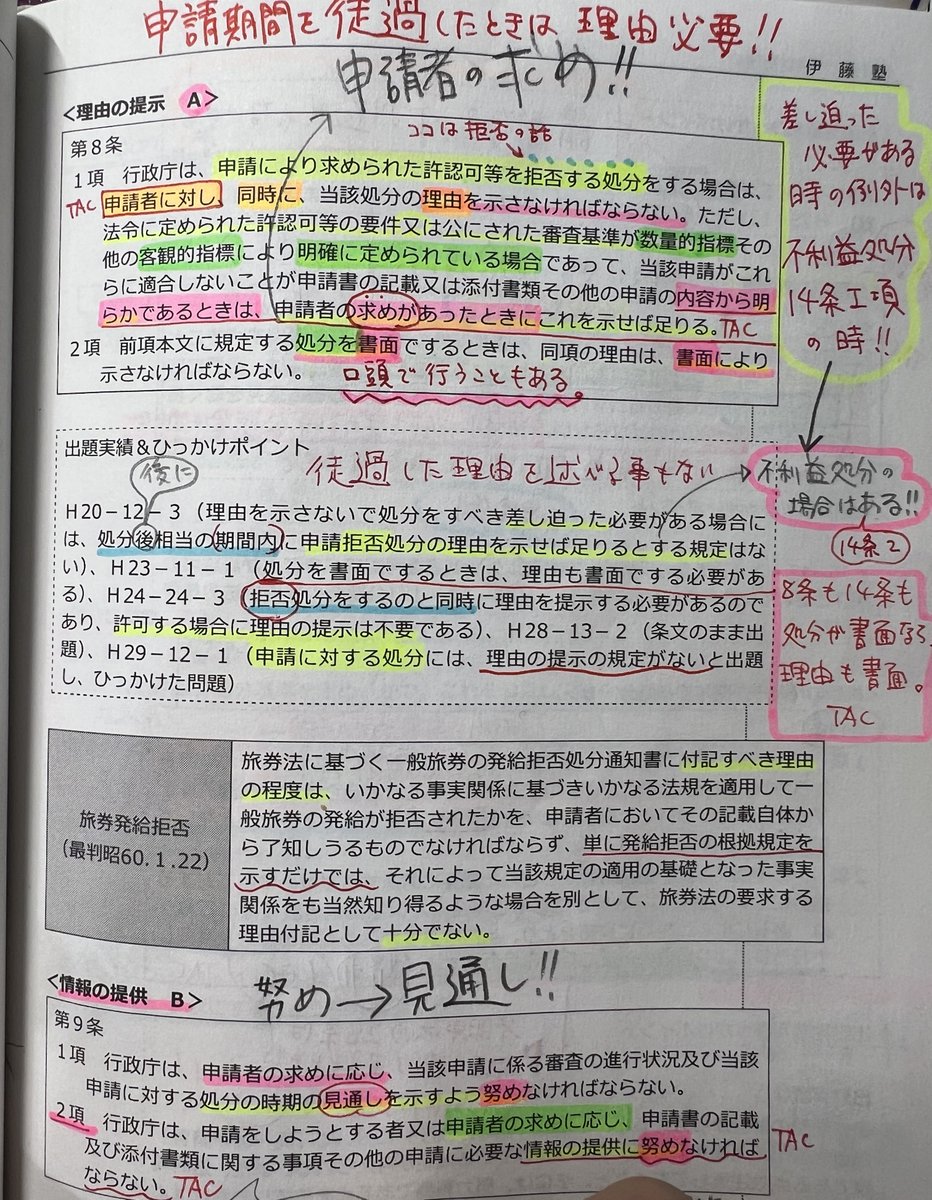 申請期間を徒過したときは理由必要!!
申請者の求め!!
伊藤塾
<理由の提示 A>
ココは拒否の話
第8条
1項 行政庁は、申請により求められた許認可等を拒否する処分をする場合は、
TAC 申請者に対し、同時に、当該処分の理由を示さなければならない。ただし、
法令に定められた許認可等の要件又は公にされた審査基準が数量的指標その
他の客観的指標により明確に定められている場合であって、当該申請がこれ
らに適合しないことが申請書の記載又は添付書類その他の申請の内容から明
らかであるときは、申請者の求めがあったときにこれを示せば足りる。TAC
2項 前項本文に規定する処分を書面でするときは、同項の理由は、書面により
示さなければならない。
口頭で行うこともある。
差し迫った
必要がある
時の例外は
不利益処分
14条1項
の時!!
出題実績&ひっかけポイント
後に
徒過した理由を述べる事もない
不利益処分の
場合はある!!
14条2
H20-12-3(理由を示さないで処分をすべき差し迫った必要がある場合に
は、処分後相当の期間内に申請拒否処分の理由を示せば足りるとする規定はな
い)、H23-11-1(処分を書面でするときは、理由も書面でする必要があ
る)、H24-24-3(拒否処分をするのと同時に理由を提示する必要があるので
あり、許可する場合に理由の提示は不要である)、H28-13-2(条文のまま出
題)、H29-12-1(申請に対する処分には、理由の提示の規定がないと出題
し、ひっかけた問題)
8条も14条も
処分が書面なら、
理由も書面。
TAC
旅券発給拒否
(最判昭60.1.22)
旅券法に基づく一般旅券の発給拒否処分通知書に付記すべき理由
の程度は、いかなる事実関係に基づきいかなる法規を適用して一
般旅券の発給が拒否されたかを、申請者においてその記載自体か
ら了知しうるものでなければならず、単に発給拒否の根拠規定を
示すだけでは、それによって当該規定の適用の基礎となった事実
関係をも当然知り得るような場合を別として、旅券法の要求する
理由付記として十分でない。
<情報の提供 B>
努め→見通し!!
第9条
1項 行政庁は、申請者の求めに応じ、当該申請に係る審査の進行状況及び当該
申請に対する処分の時期の見通しを示すよう努めなければならない。
2項 行政庁は、申請をしようとする者又は申請者の求めに応じ、申請書の記載
及び添付書類に関する事項その他の申請に必要な情報の提供に努めなければ TAC
ならない。TAC